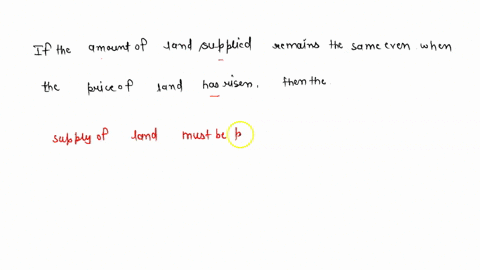 If the amount of land supplied remains the same even when
the price of land has risen, then the
supply of land must be p